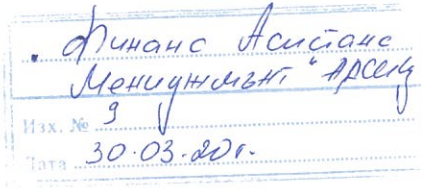 "Финанс Асистанс
Мениджмънт" АДСИЦ
Изх. № 9
Дата 30.03.20г.